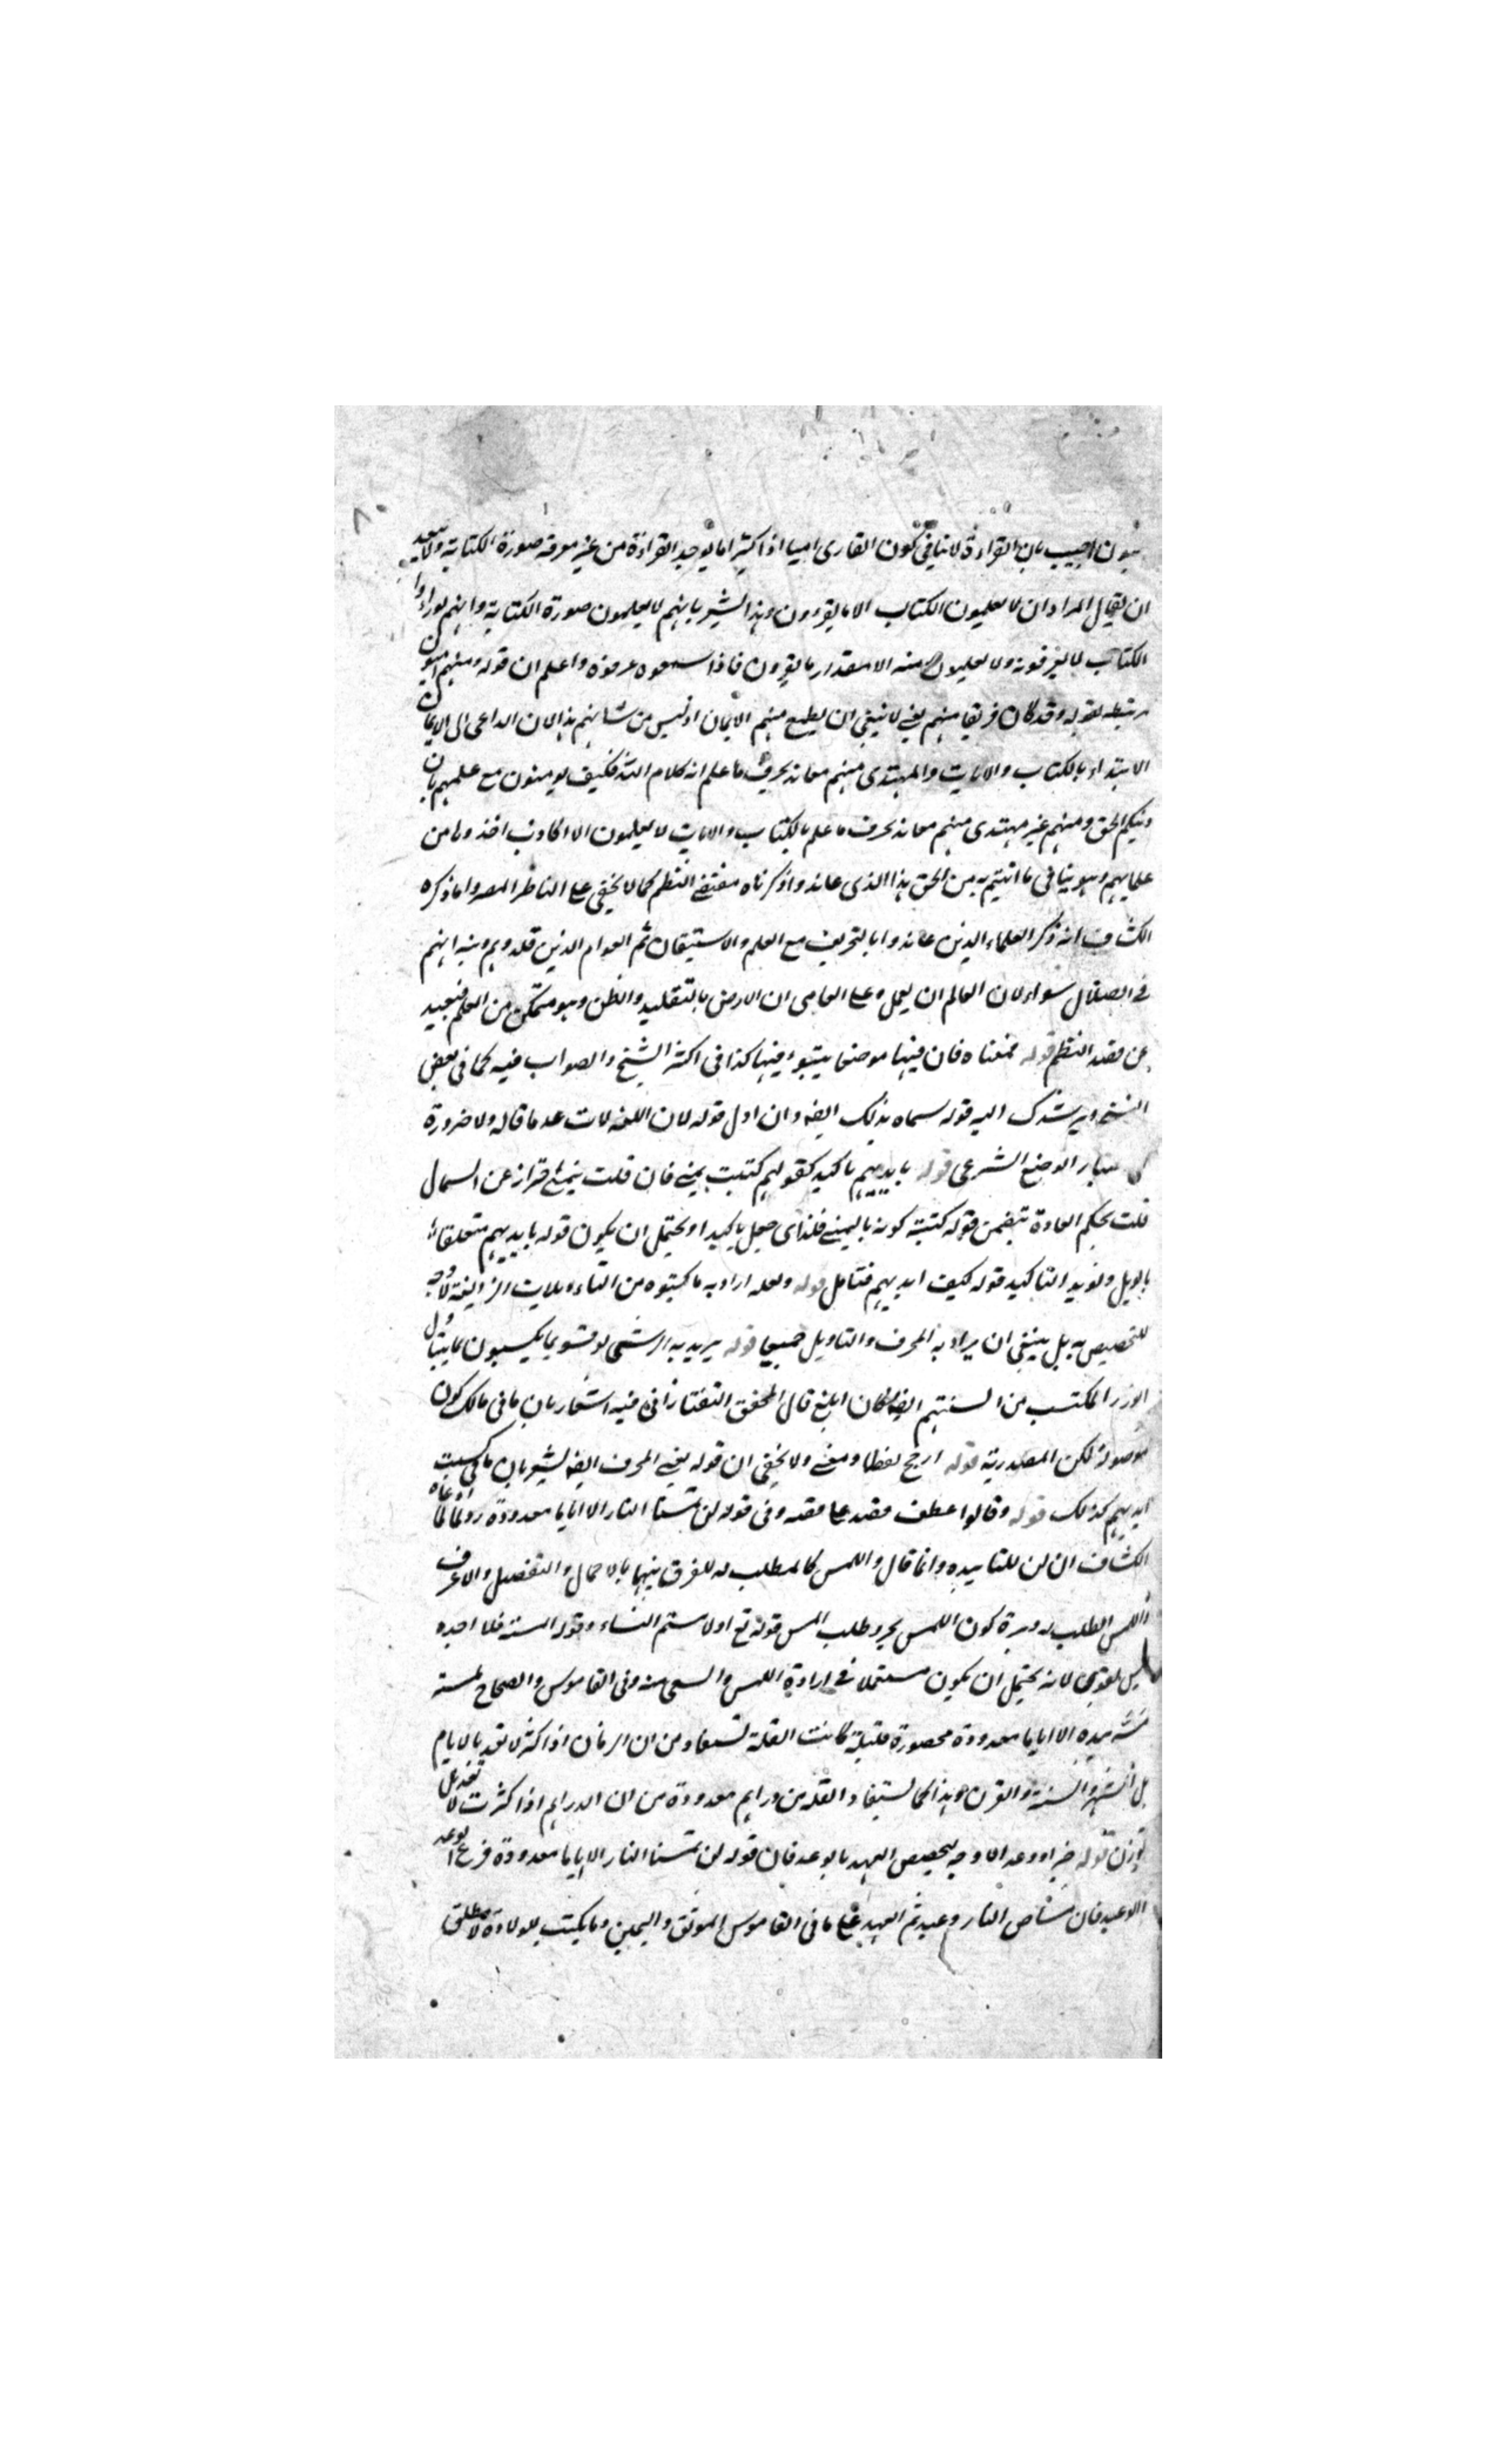 اميون اجيب بان القراءة لا ينافي كون القارى اميا اذ اكثيرا ما يوجد القراءة من غير معرفة صورة الكتابة ولا يبعد
ان يقال المراد ان لا يعلمون الكتاب الا ما يقرءون وهذا يشير بانهم لا يعلمون صورة الكتابة وانهم لو راوا
الكتاب لا يعرفونه ولا يعلمون منه الا مقدار ما يقرون فاذا سمعوه عرفوه واعلم ان قوله ومنهم اميون
مرتبط بقوله وقد كان فريقا منهم يعني لا ينبغي ان يطمع منهم الايمان اذ ليس من شانهم هذا لان الداعي الى الايمان
الاهتداء بالكتاب والايات والمهتدى منهم معاند يحرف ما علم انه كلام الله فكيف يومنون مع علمهم بان
دينكم الحق ومنهم غير مهتدى منهم معاند يحرف ما علم بالكتاب والايات لا يعلمون الا اكاذيب اخذوها من
علمايهم وهو ينافي ما انتم به من الحق هذا الذي عاند واذكرناه مقتضى النظم كما لا يخفى على الناظر المصر واما ذكره
الكشاف انه ذكر العلماء الذين عاندوا بالتحريف مع العلم والاستيقان ثم العوام الذين قلدوهم ونبه انهم
في الضلال سواء لان العالم ان يعمل وعلى العامى ان لا يرض بالتقليد والظن وهو متمكن من العلم فبعيد
عن مقصد النظم قوله فمعناه فان فيها موضعا يتبوء فيها كذا في اكثر النسخ والصواب فيه كما في بعض
النسخ ويرشدك اليه قوله سماه بذلك ايضا وان اول قوله لان اللغة لات عد ما قاله ولا ضرورة
الوضع الشرعى قوله بايديهم تاكيد كقولهم كتبت بيمينى فان قلت عن الشمال
قلت بحكم العادة تتضمن قوله كتبته كونه باليمين فلذاى جعل تاكيدا ويحتمل ان يكون قوله بايديهم متعلقا
بالويل ويويد التاكيد قوله كتبت ايديهم فتامل قوله ولعله اراد به ما كتبوه من التاويلات الزايغة لا وجه
للتخصيص به بل ينبغي ان يراد به المحرف والتاويل جميعا قوله يريد به الرشى لو فسر ما يكسبون بما يتناول
الوزر المكتسب من السنتهم ايضا لكان ابلغ قال المحقق التفتازانى فيه اشعار بان ما في مالك كون
موصولة لكن المصدرية قوله ارجح لفظا ومعنى ولا يخفى ان قوله يعني المحرف ايضا يشير بان ما كسبت
ايديهم كذلك قوله وقالوا عطف مقصد على مقصد وفي قوله لن تمسنا النار الا اياما معدودة رد لما ادعاه
الكشاف ان لن للتابيد وانما قال واللمس كالطلب له للفرق بينهما بالاجمال والتفصيل والاعرف
اللمس الطلب له كون اللمس مجرد طلب المس قوله تع او لامستم النساء وقوله المسه فلا اجده
ليس بقوى لانه يحتمل ان يكون مستعملا في ارادة اللمس والسعى منه وفي القاموس والصحاح لمسه
مسه بيده الا اياما معدودة محصورة قليلة كانت القلة تستفاد من ان الزمان اذا كثر لا تعد بالايام
بل الشهر والسنة والقرن وهذا كما يستفاد القلة من دراهم معدودة من ان الدراهم اذا كثرت لا تعد بل
توزن قوله خبرا او وعدا لا وجه لتخصيص العهد بالوعد فان قوله لن تمسنا النار الا اياما معدودة فرع الوعد
الوعيد فان مساس النار وعيد ثم العهد على ما في القاموس الموثق واليمين وما يكتب للولاة لا مطلق